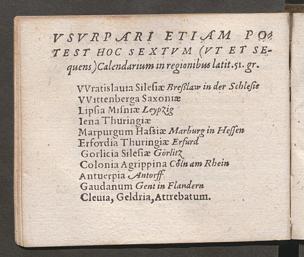 VSVRPARI ETIAM PO-
TEST HOC SEXTVM (VT ET SE-
quens) Calendarium in regionibus latit. 51. gr.
VVratislauta Silesiæ Breßlaw in der Schlesie
VVittenberga Saxoniæ
Lipsia Misniæ Leypzig
Iena Thuringiæ
Marpurgum Hassiæ Marburg in Hessen
Erfordia Thuringiæ Erfurd
Gorlicia Silesiæ Görlitz
Colonia Agrippina Cöln am Rhein
Antuerpia Antorff
Gaudanum Gent in Flandern
Cleuia, Geldria, Attrebatum.